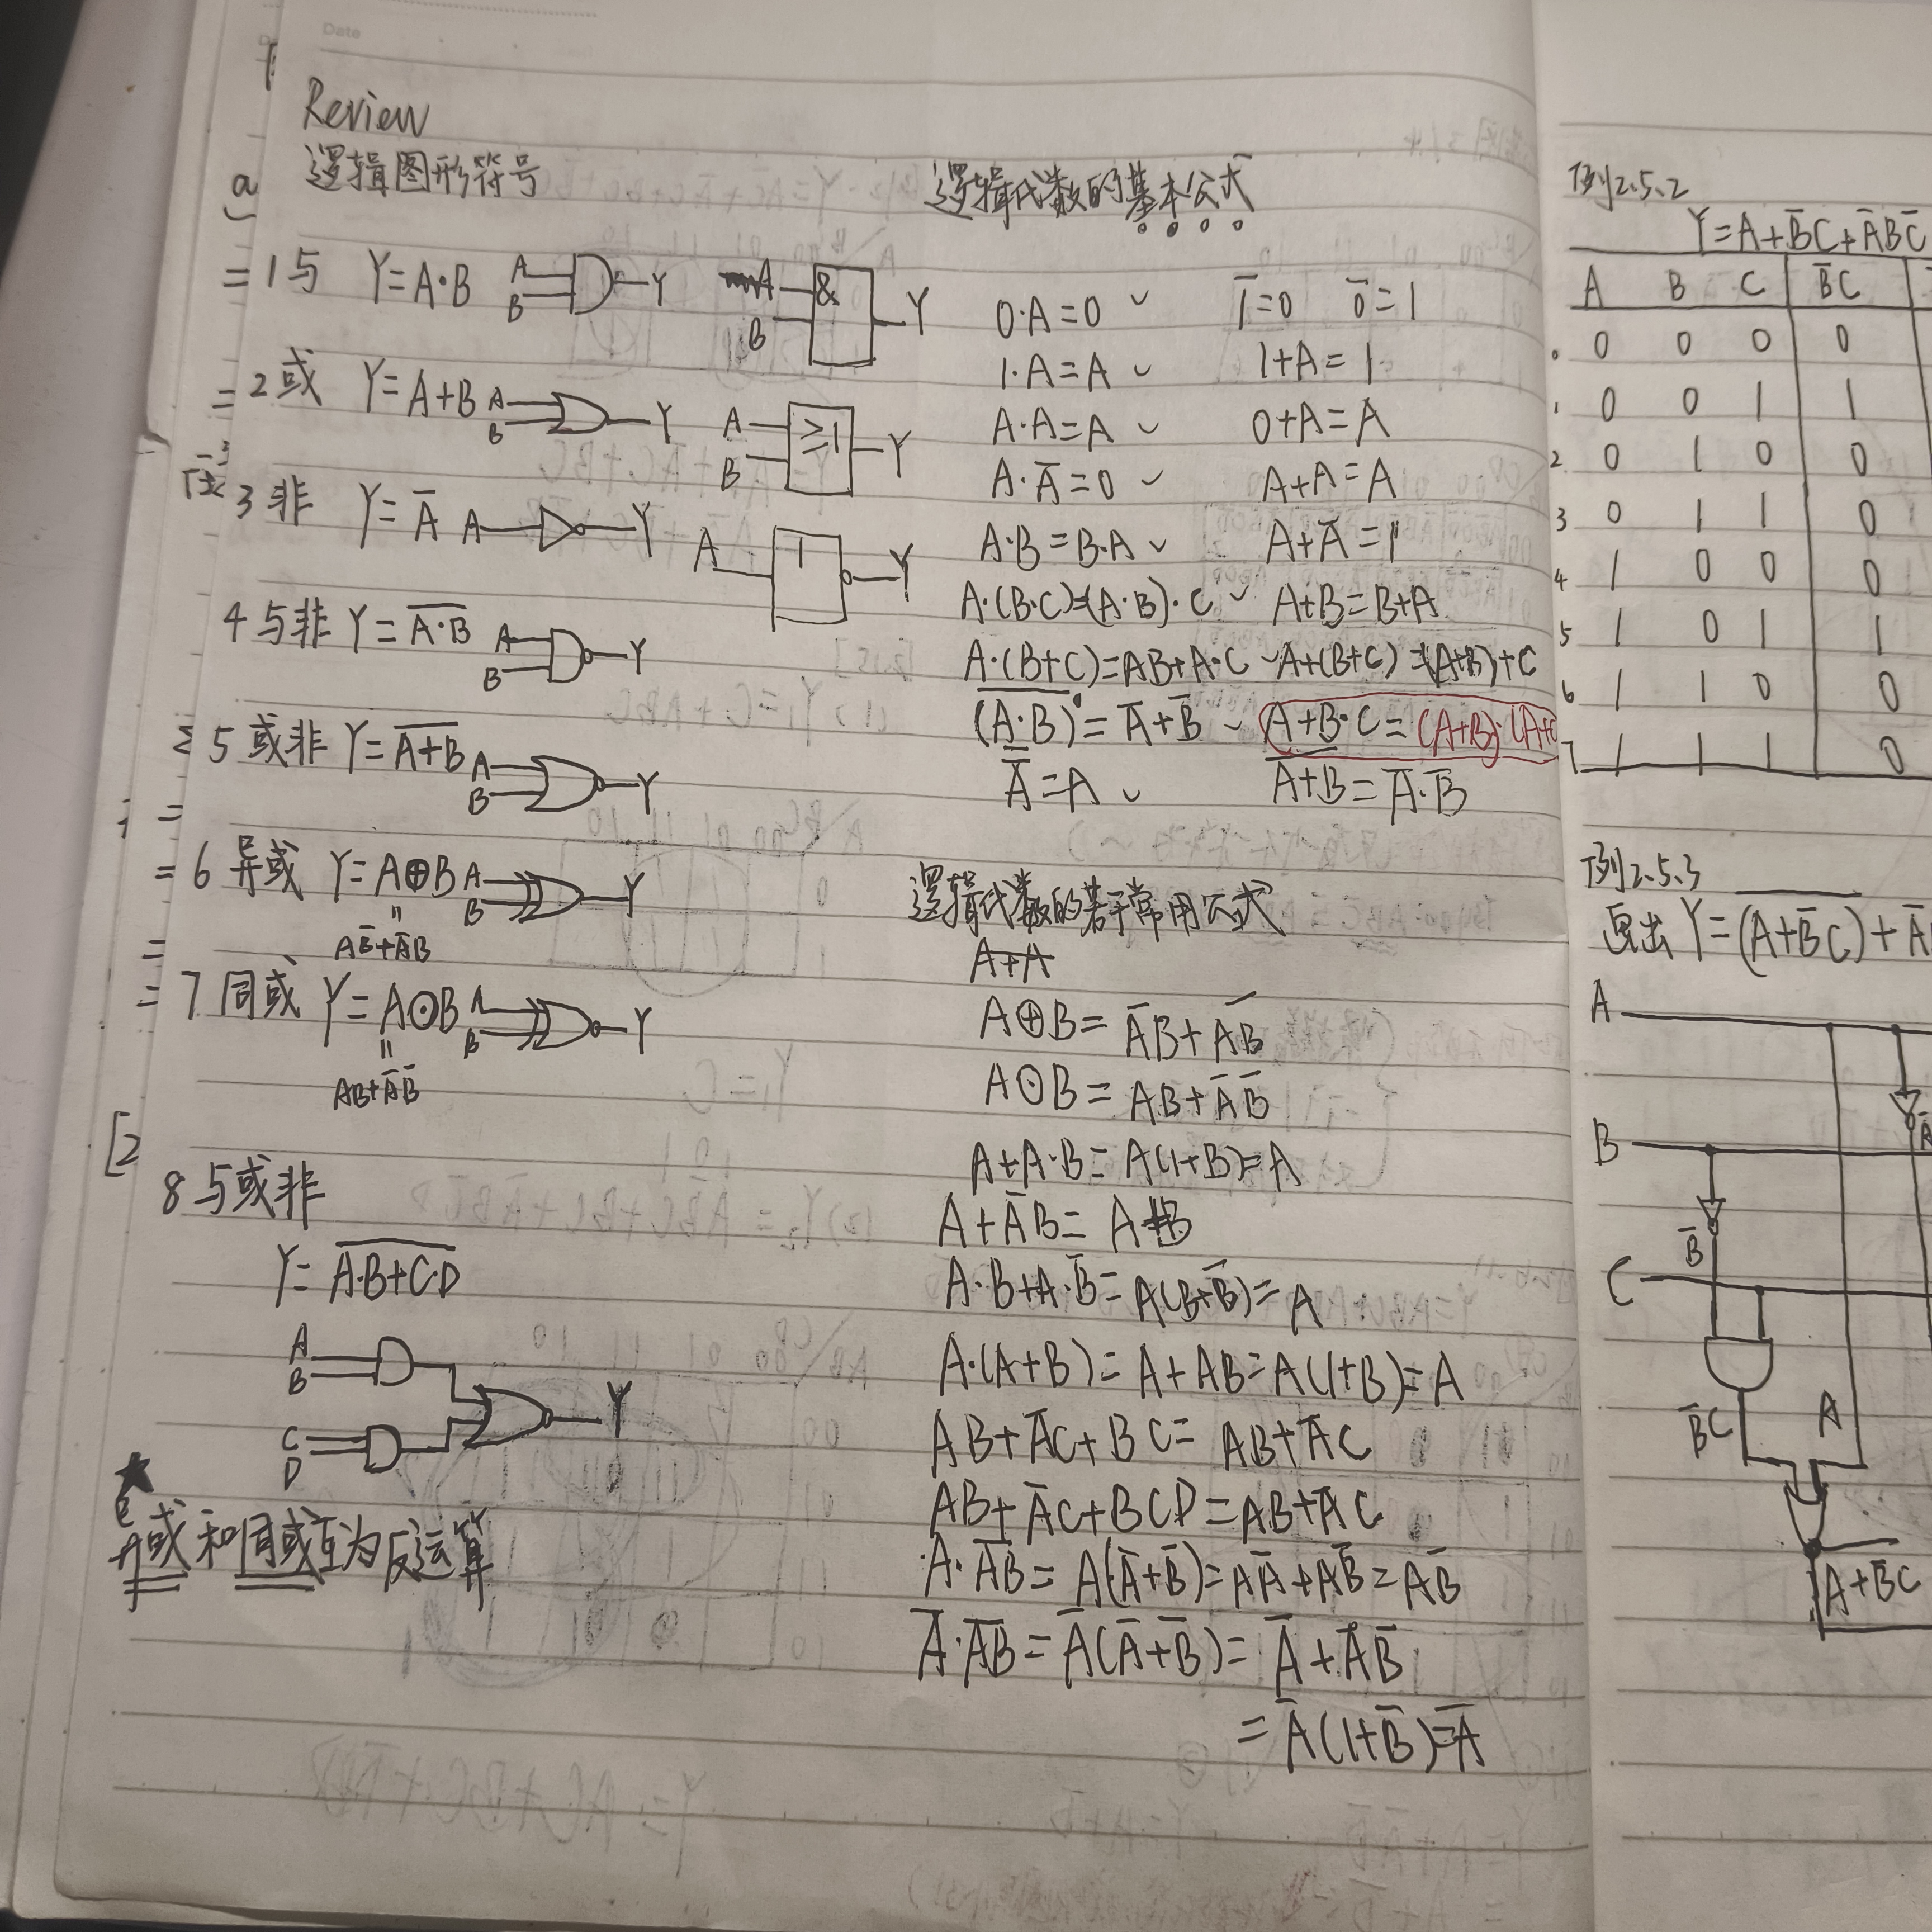 Date
Review
逻辑图形符号
1与 Y=A·B A B Y A B & Y
2或 Y=A+B A B Y A B ≥1 Y
3非 Y=A̅ A Y A 1 Y
4与非 Y=\overline{A·B} A B Y
5或非 Y=\overline{A+B} A B Y
6异或 Y=A⊕B A B Y
=
AB̅+A̅B
7同或 Y=A⊙B A B Y
=
AB+A̅B̅
8与或非
Y=\overline{A·B+C·D}
A
B
C
D
Y
★
异或和同或互为反运算
逻辑代数的基本公式
0·A=0 ✓ 1̅=0 0̅=1
1·A=A ✓ 1+A=1
A·A=A ✓ 0+A=A
A·A̅=0 ✓ A+A=A
A·B=B·A ✓ A+A̅=1
A·(B·C)=(A·B)·C ✓ A+B=B+A
A·(B+C)=AB+A·C ✓ A+(B+C)=(A+B)+C
\overline{(A·B)}=A̅+B̅ ✓ A+B·C=(A+B)·(A+C
\overline{A̅}=A ✓ \overline{A+B}=A̅·B̅
逻辑代数的若干常用公式
A+A
A⊕B=A̅B+AB̅
A⊙B=AB+A̅B̅
A+A·B=A(1+B)=A
A+A̅B=A+B
A·B+A·B̅=A(B+B̅)=A
A·(A+B)=A+AB=A(1+B)=A
AB+A̅C+BC=AB+A̅C
AB+A̅C+BCD=AB+A̅C
A·\overline{AB}=A(A̅+B̅)=AA̅+AB̅=AB̅
A̅·\overline{AB}=A̅(A̅+B̅)=A̅+A̅B̅
=A̅(1+B̅)=A̅
例2.5.2
Y=A+B̅C+A̅BC̅
A B C B̅C
0 0 0 0 0
1 0 0 1 1
2 0 1 0 0
3 0 1 1 0
4 1 0 0 0
5 1 0 1 1
6 1 1 0 0
7 1 1 1 0
例2.5.3
画出 Y=\overline{(A+B̅C)}+A̅
A
B
B̅
C
B̅C
A
A+B̅C